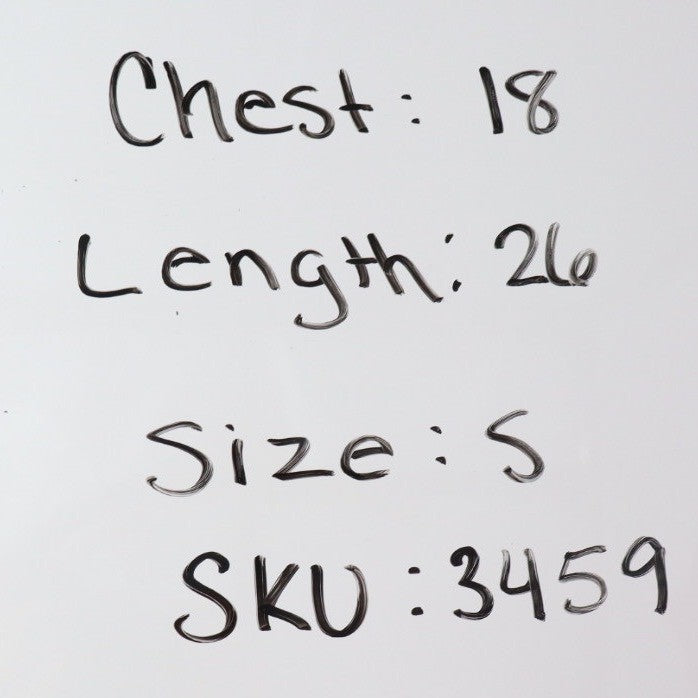 Chest: 18
Length: 26
Size: S
SKU: 3459